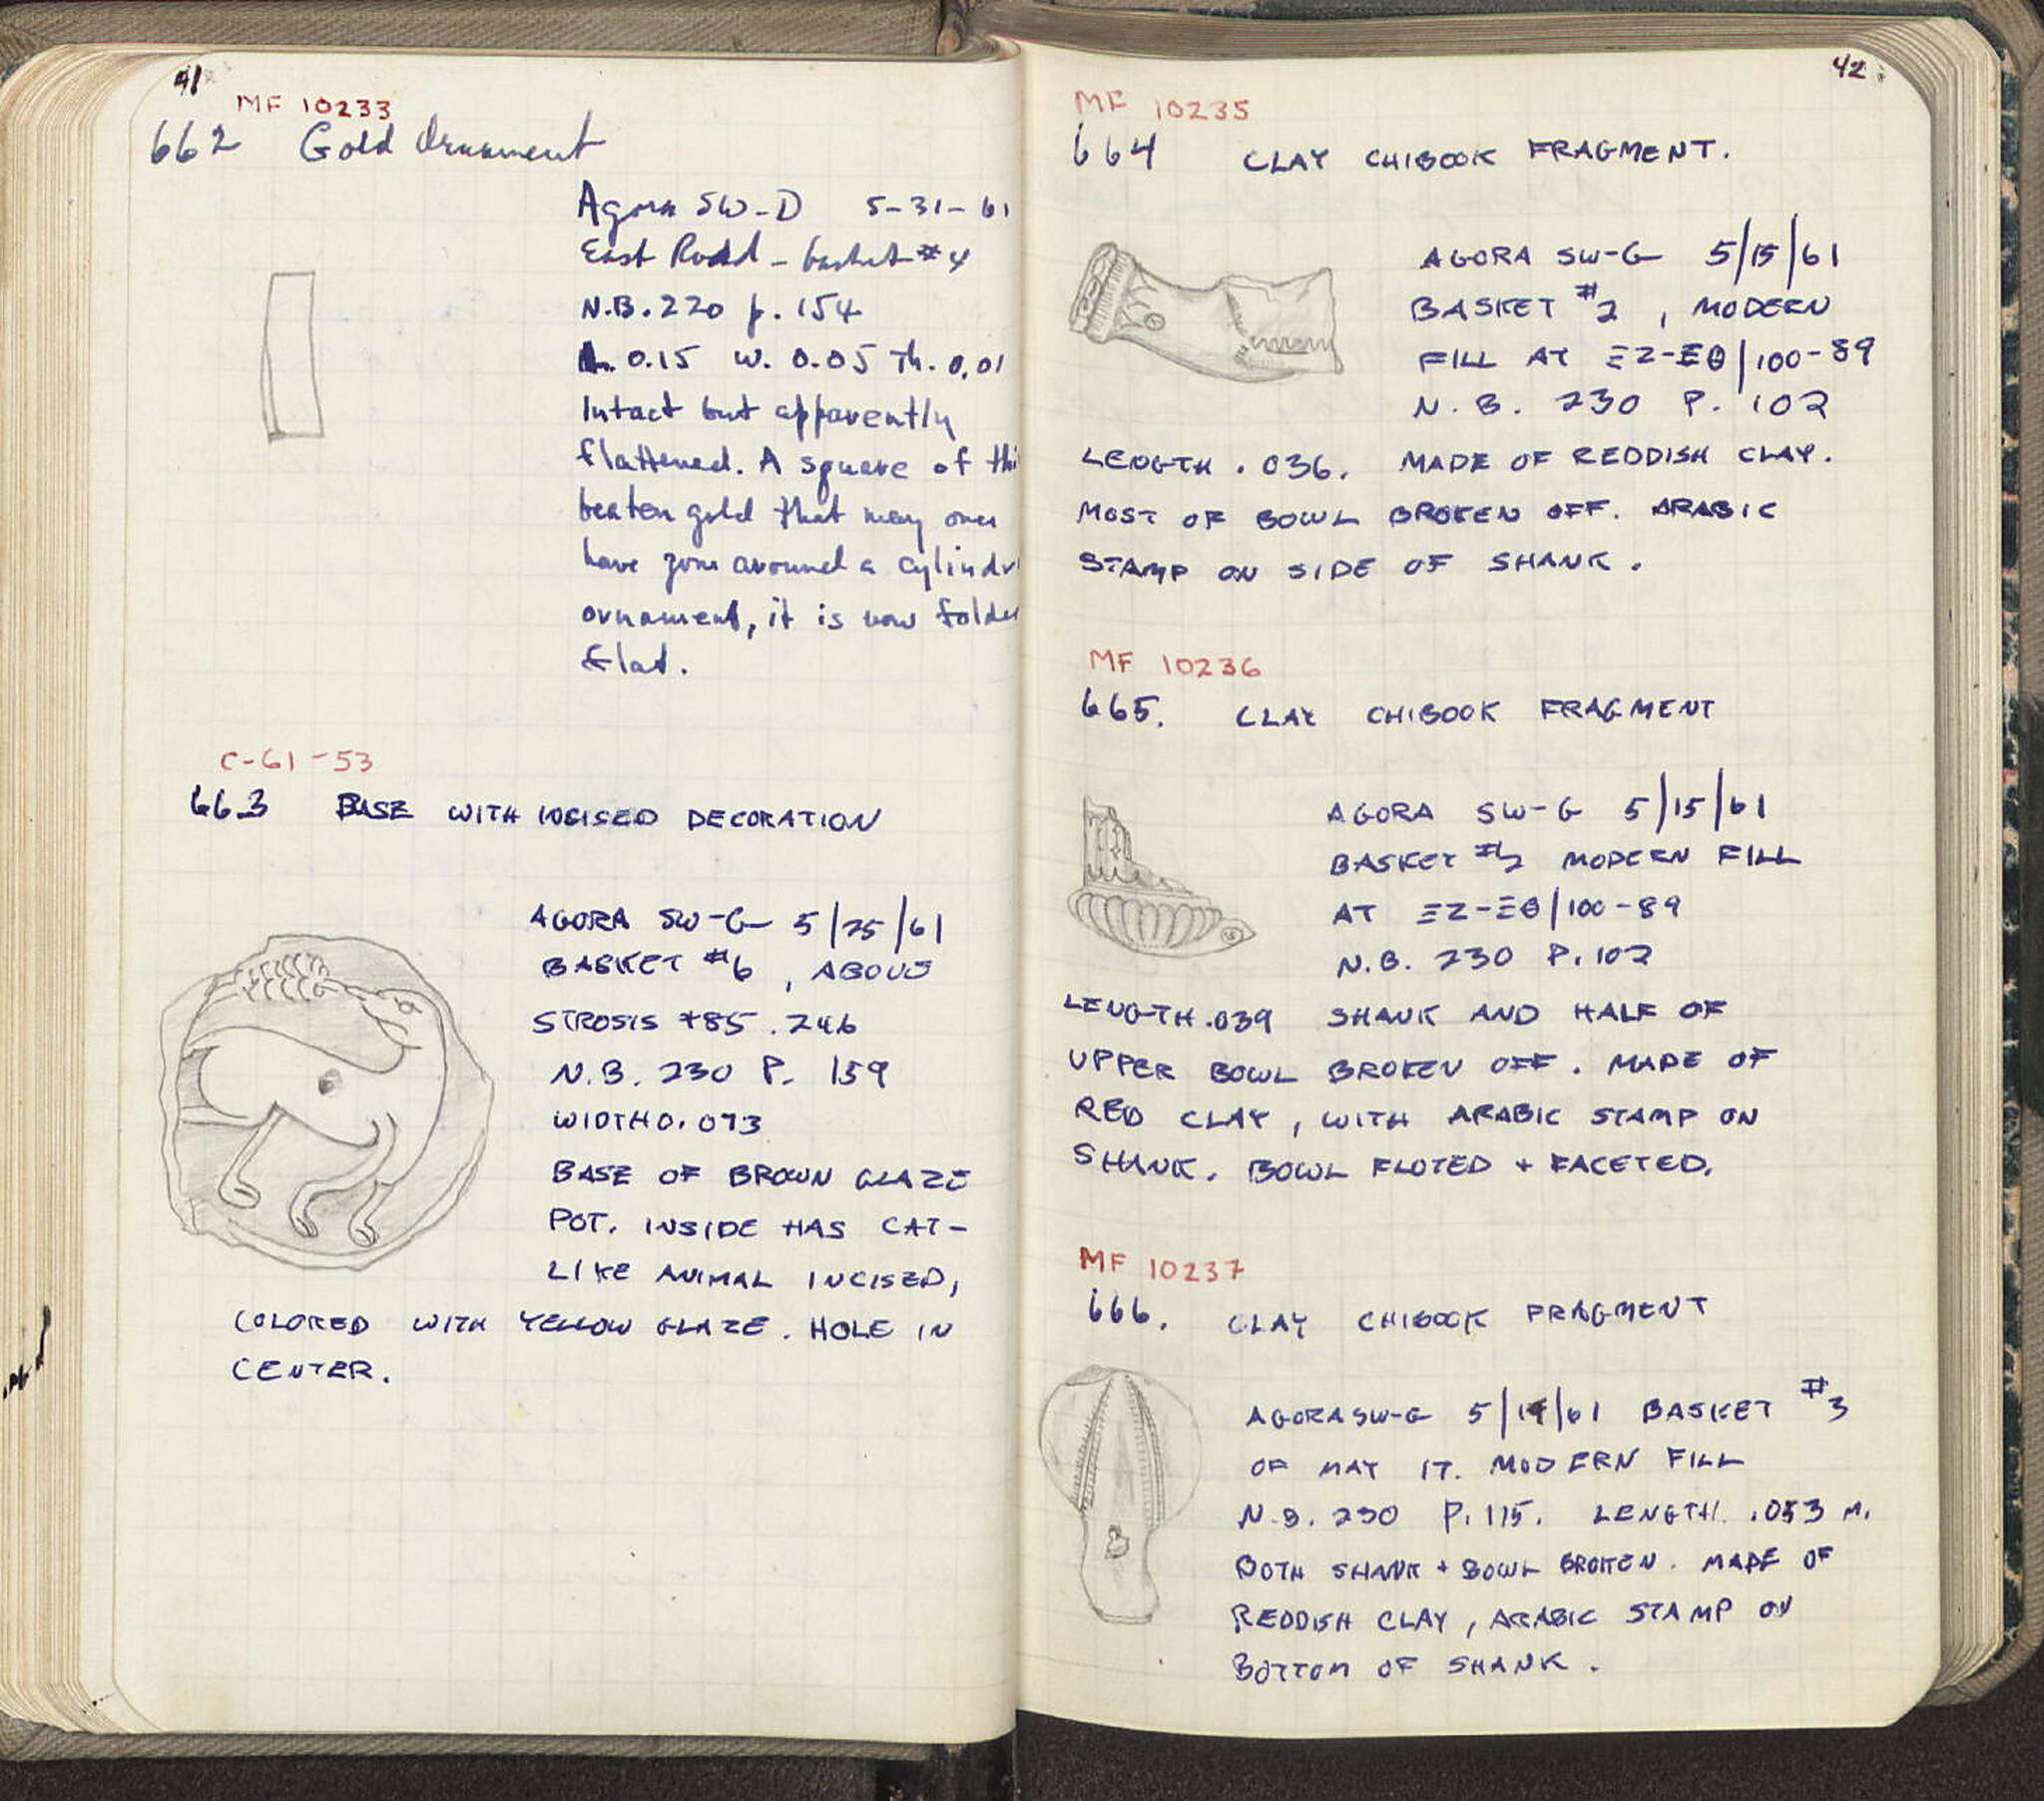 41
MF 10233
662 Gold Ornament
Agora SW-D 5-31-61
East Road - basket #4
N.B. 220 p. 154
L. 0.15 W. 0.05 Th. 0.01
Intact but apparently
flattened. A square of thi
beaten gold that may once
have gone around a cylindr
ornament, it is now folde
flat.
C-61-53
663 BASE WITH INCISED DECORATION
AGORA SW-G 5/25/61
BASKET #6, ABOVE
STROSIS +85.246
N.B. 230 P. 159
WIDTH 0.073
BASE OF BROWN GLAZE
POT. INSIDE HAS CAT-
LIKE ANIMAL INCISED,
COLORED WITH YELLOW GLAZE. HOLE IN
CENTER.
42
MF 10235
664 CLAY CHIBOOK FRAGMENT.
AGORA SW-G 5/15/61
BASKET #2, MODERN
FILL AT ΞZ-ΞΘ/100-89
N.B. 230 P. 102
LENGTH .036. MADE OF REDDISH CLAY.
MOST OF BOWL BROKEN OFF. ARABIC
STAMP ON SIDE OF SHANK.
MF 10236
665. CLAY CHIBOOK FRAGMENT
AGORA SW-G 5/15/61
BASKET #2 MODERN FILL
AT ΞZ-ΞΘ/100-89
N.B. 230 P. 102
LENGTH .039 SHANK AND HALF OF
UPPER BOWL BROKEN OFF. MADE OF
RED CLAY, WITH ARABIC STAMP ON
SHANK. BOWL FLUTED + FACETED.
MF 10237
666. CLAY CHIBOOK FRAGMENT
AGORA SW-G 5/19/61 BASKET #3
OF MAY 17. MODERN FILL
N.B. 230 P. 115. LENGTH .053 M.
BOTH SHANK + BOWL BROKEN. MADE OF
REDDISH CLAY, ARABIC STAMP ON
BOTTOM OF SHANK.